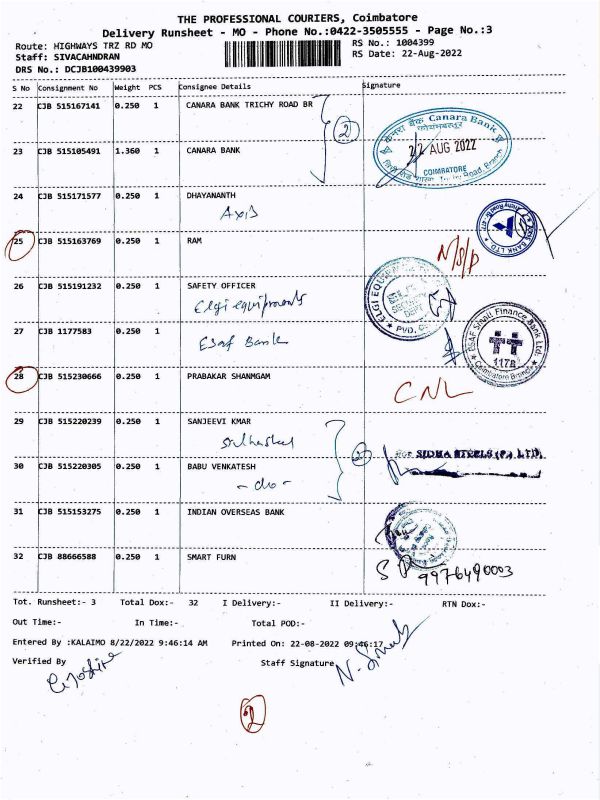 THE PROFESSIONAL COURIERS, Coimbatore
Delivery Runsheet - MO - Phone No.:0422-3505555 - Page No.:3
Route: HIGHWAYS TRZ RD MO
RS No.: 1004399
Staff: SIVACAHNDRAN
RS Date: 22-Aug-2022
DRS No.: DCJB100439903
S No Consignment No Weight PCS Consignee Details Signature
22 CJB 515167141 0.250 1 CANARA BANK TRICHY ROAD BR
2
Canara Bank
22 AUG 2022
COIMBATORE
23 CJB 515105491 1.360 1 CANARA BANK
24 CJB 515171577 0.250 1 DHAYANANTH
Axis
25 CJB 515163769 0.250 1 RAM
N/S/P
26 CJB 515191232 0.250 1 SAFETY OFFICER
Elgi equipments
27 CJB 1177583 0.250 1
Esaf Bank
ESAF Small Finance Bank Ltd.
1178
Coimbatore Branch
28 CJB 515230666 0.250 1 PRABAKAR SHANMGAM
CNL
29 CJB 515220239 0.250 1 SANJEEVI KMAR
2
FOR SIDHA STEELS (P) LTD
30 CJB 515220305 0.250 1 BABU VENKATESH
- do -
31 CJB 515153275 0.250 1 INDIAN OVERSEAS BANK
32 CJB 88666588 0.250 1 SMART FURN
9976490003
Tot. Runsheet:- 3 Total Dox:- 32 I Delivery:- II Delivery:- RTN Dox:-
Out Time:- In Time:- Total POD:-
Entered By :KALAIMO 8/22/2022 9:46:14 AM Printed On: 22-08-2022 09:46:17
Verified By Staff Signature
2